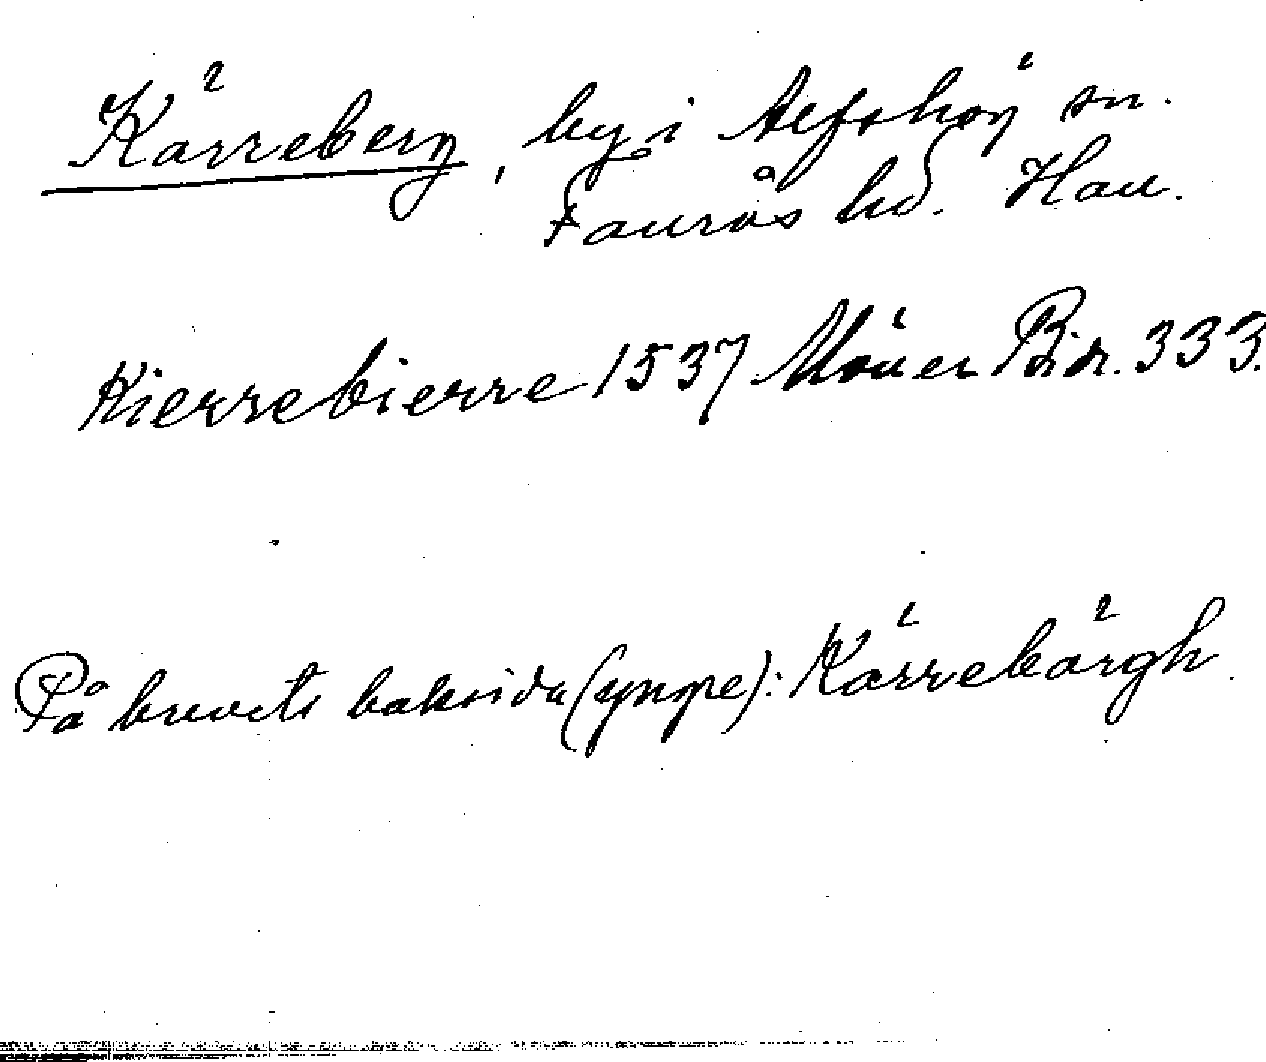 Kärreberg, by i Alfshög sn.
Faurås hd. Hall.
Kierrebierre 1537 Möller Bidr. 333.
På brevets baksida (yngre): Kärrebärgh.